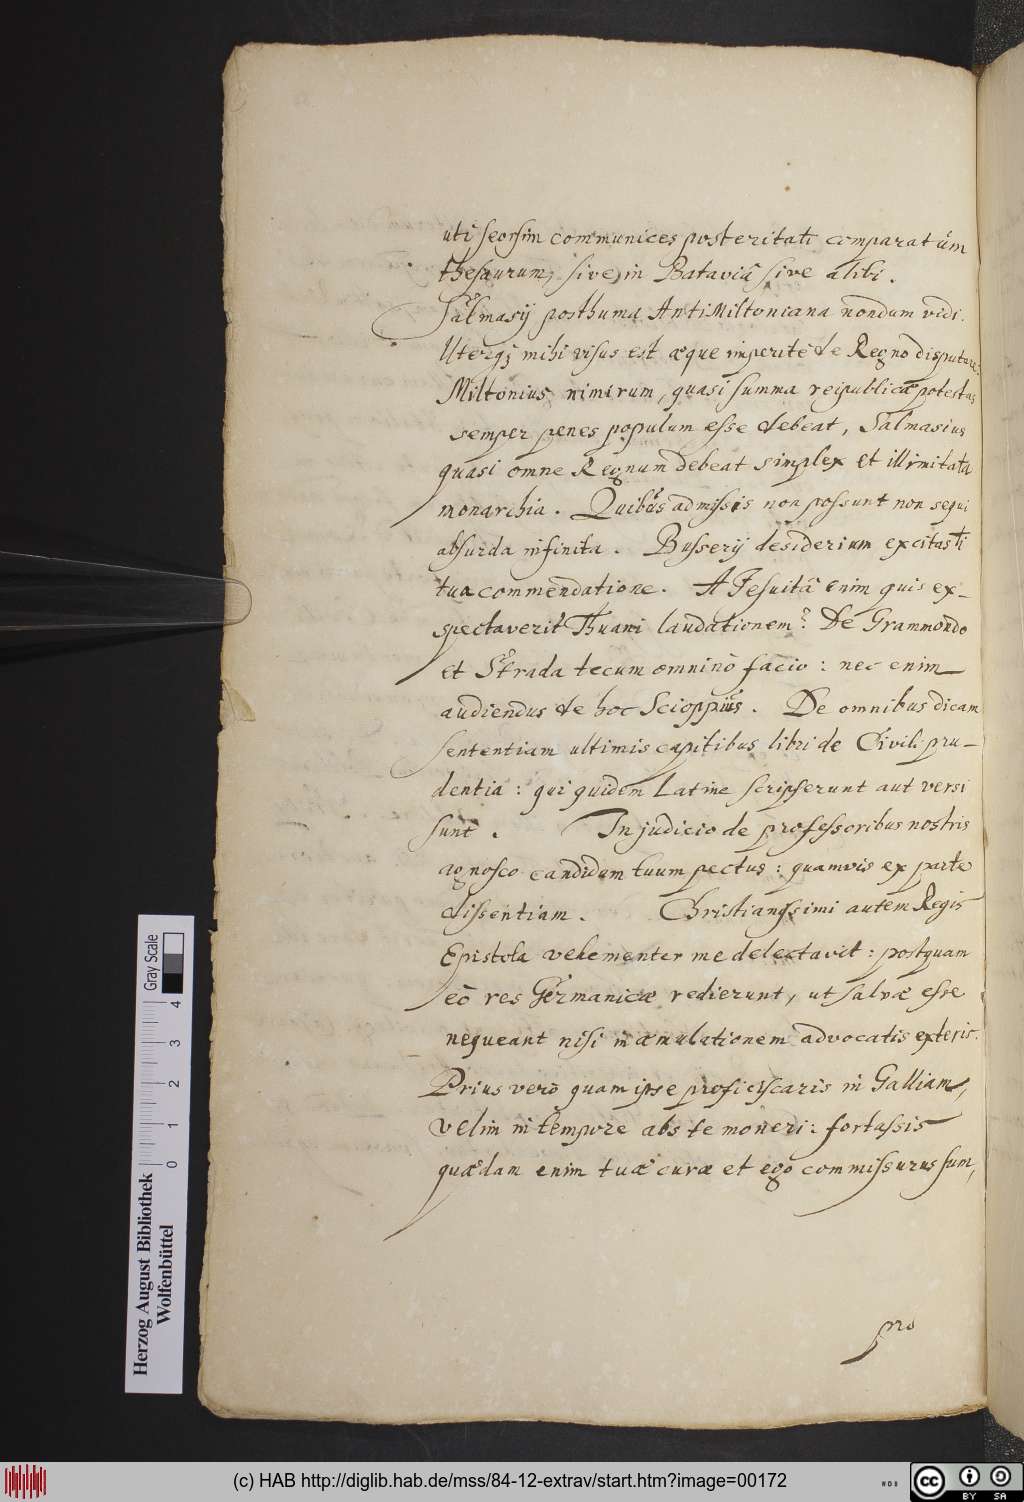 uti seorsim communices posteritati comparatum
thesaurum, sive in Bataviâ sive alibi.
Salmasij posthuma AntiMiltoniana nondum vidi.
Uterq; mihi visus est æque imperitè de Regno disputare:
Miltonius nimirum, quasi summa reipublicæ potestas
semper penes populum esse debeat, Salmasius
quasi omne Regnum debeat simplex et illimitata
monarchia. Quibus admissis non possunt non sequi
absurda infinita. Busserij desiderium excitasti
tua commendatione. A Jesuitâ enim quis ex-
spectaverit Thuani laudationem? De Grammondo
et Strada tecum omninò facio: nec enim
audiendus de hoc Scioppius. De omnibus dicam
sententiam ultimis capitibus libri de Civili pru-
dentia: qui quidem Latine scripserunt aut versi
sunt. In judicio de professoribus nostris
agnosco candidum tuum pectus: quamvis ex parte
dissentiam. Christianissimi autem Regis
Epistola vehementer me delectavit: postquam
eò res Germanicæ redierunt, ut salvæ esse
nequeant nisi in æmulationem advocatis exteris.
Prius verò quam ipse proficiscaris in Galliam,
velim in tempore abs te moneri: fortassis
quædam enim tuæ curæ et ego commissurus sum,
pro
Herzog August Bibliothek
Wolfenbüttel
Gray Scale
0 1 2 3 4
(c) HAB http://diglib.hab.de/mss/84-12-extrav/start.htm?image=00172
cc BY SA